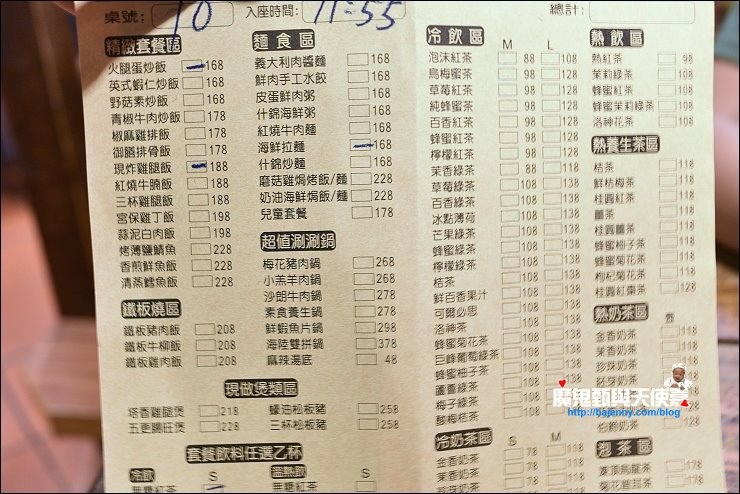 桌號: 10 入座時間: 11:55 總計:
精緻套餐區
火腿蛋炒飯 168
英式蝦仁炒飯 168
野菇素炒飯 168
青椒牛肉炒飯 178
椒麻雞排飯 178
御膳排骨飯 178
現炸雞腿飯 188
紅燒牛腩飯 188
三杯雞腿飯 188
宮保雞丁飯 198
蒜泥白肉飯 198
烤薄鹽鯖魚 228
香煎鮮魚飯 228
清蒸鱈魚飯 228
鐵板燒區
鐵板豬肉飯 208
鐵板牛柳飯 208
鐵板雞肉飯 208
麵食區
義大利肉醬麵 168
鮮肉手工水餃 168
皮蛋鮮肉粥 168
什錦海鮮粥 168
紅燒牛肉麵 168
海鮮拉麵 168
什錦炒麵 168
蘑菇雞焗烤飯/麵 228
奶油海鮮焗飯/麵 228
兒童套餐 178
超值涮涮鍋
梅花豬肉鍋 268
小羔羊肉鍋 268
沙朗牛肉鍋 268
素食養生鍋 278
鮮蝦魚片鍋 298
海陸雙拼鍋 378
麻辣湯底 48
現做煲類區
塔香雞腿煲 218 蠔油松板豬 258
五更腸旺煲 228 三杯松板豬 258
套餐飲料任選乙杯
冷飲 S 溫熱飲 S
無糖紅茶 無糖紅茶
冷飲區 M L
泡沫紅茶 88 108
烏梅蜜茶 98 128
草莓紅茶 98 128
純蜂蜜茶 98 128
百香紅茶 98 128
蜂蜜紅茶 98 128
檸檬紅茶 98 128
茉香綠茶 88 108
草莓綠茶 108 138
百香綠茶 108 138
冰點薄荷 108 138
芒果綠茶 108 138
蜂蜜綠茶 108 138
檸檬綠茶 108 138
桔茶 108 138
鮮百香果汁 108 138
可爾必思 108 138
洛神茶 108 138
蜂蜜菊花茶 108 138
巨峰葡萄綠茶 108 138
蜂蜜柚子茶 108 138
蘆薈綠茶 108 138
梅子綠茶 108 138
酸梅桔茶 108 138
冷奶茶區 S M
金香奶茶 78 108
茉香奶茶 78 108
熱飲區
熱紅茶 98
茉莉綠茶 108
蜂蜜紅茶 108
蜂蜜茉莉綠茶 108
洛神花茶 108
熱養生茶區
桔茶 118
鮮桔梅茶 118
桂圓紅茶 118
薑茶 118
桂圓薑茶 118
蜂蜜柚子茶 118
蜂蜜菊花茶 118
枸杞菊花茶 118
桂圓紅棗茶 128
熱奶茶區
金香奶茶 118
茉香奶茶 118
珍珠奶茶
伯爵奶茶 128
泡茶區
凍頂烏龍茶 178
菊花普洱茶 178
魔鬼甄與天使嘉
http://bajenny.com/blog